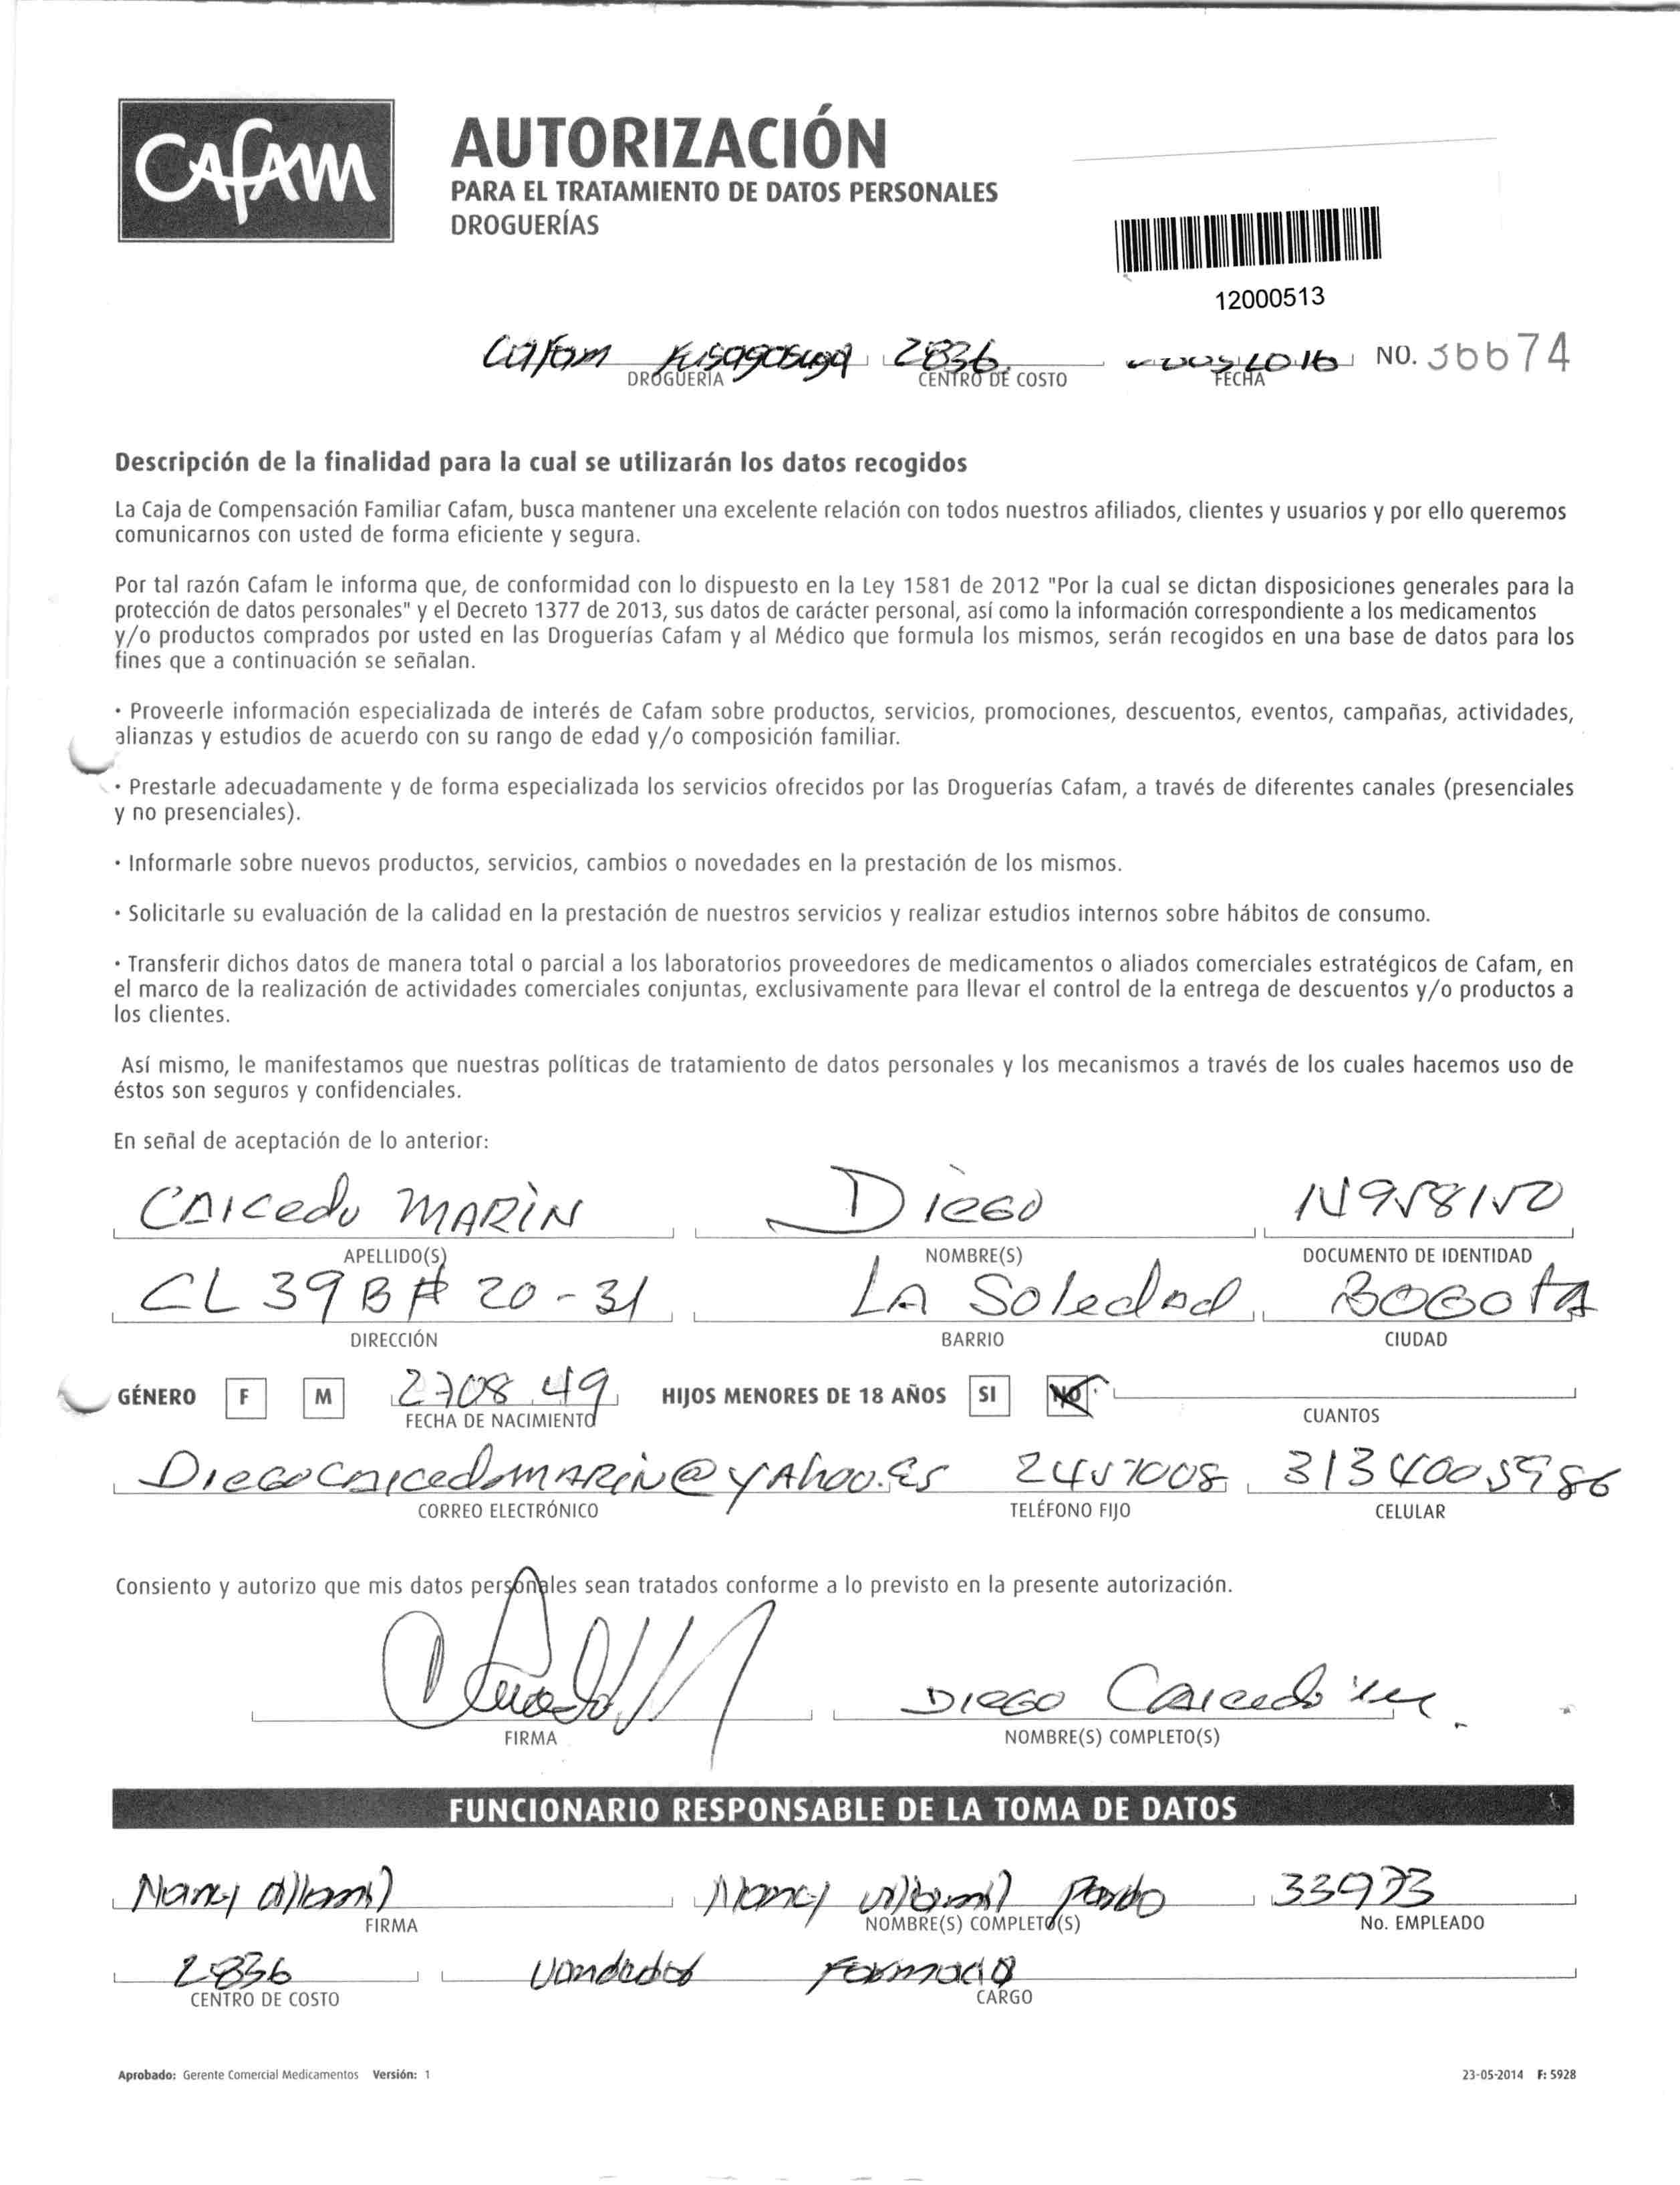 CAFAM
AUTORIZACIÓN
PARA EL TRATAMIENTO DE DATOS PERSONALES
DROGUERÍAS
12000513
Cafam Fusagasuga 2836 NO. 36674
DROGUERÍA CENTRO DE COSTO FECHA
Descripción de la finalidad para la cual se utilizarán los datos recogidos
La Caja de Compensación Familiar Cafam, busca mantener una excelente relación con todos nuestros afiliados, clientes y usuarios y por ello queremos
comunicarnos con usted de forma eficiente y segura.
Por tal razón Cafam le informa que, de conformidad con lo dispuesto en la Ley 1581 de 2012 "Por la cual se dictan disposiciones generales para la
protección de datos personales" y el Decreto 1377 de 2013, sus datos de carácter personal, así como la información correspondiente a los medicamentos
y/o productos comprados por usted en las Droguerías Cafam y al Médico que formula los mismos, serán recogidos en una base de datos para los
fines que a continuación se señalan.
· Proveerle información especializada de interés de Cafam sobre productos, servicios, promociones, descuentos, eventos, campañas, actividades,
alianzas y estudios de acuerdo con su rango de edad y/o composición familiar.
· Prestarle adecuadamente y de forma especializada los servicios ofrecidos por las Droguerías Cafam, a través de diferentes canales (presenciales
y no presenciales).
· Informarle sobre nuevos productos, servicios, cambios o novedades en la prestación de los mismos.
· Solicitarle su evaluación de la calidad en la prestación de nuestros servicios y realizar estudios internos sobre hábitos de consumo.
· Transferir dichos datos de manera total o parcial a los laboratorios proveedores de medicamentos o aliados comerciales estratégicos de Cafam, en
el marco de la realización de actividades comerciales conjuntas, exclusivamente para llevar el control de la entrega de descuentos y/o productos a
los clientes.
Así mismo, le manifestamos que nuestras políticas de tratamiento de datos personales y los mecanismos a través de los cuales hacemos uso de
éstos son seguros y confidenciales.
En señal de aceptación de lo anterior:
Caicedo MARìN Diego
APELLIDO(S) NOMBRE(S) DOCUMENTO DE IDENTIDAD
CL 39 B # 20-31 LA Soledad BOGOTA
DIRECCIÓN BARRIO CIUDAD
GÉNERO F M 2708 49 HIJOS MENORES DE 18 AÑOS SI NO
FECHA DE NACIMIENTO CUANTOS
DiegoCaicedoMARiN@yAhoo.es 2457008 3134005986
CORREO ELECTRÓNICO TELÉFONO FIJO CELULAR
Consiento y autorizo que mis datos personales sean tratados conforme a lo previsto en la presente autorización.
Diego Caicedo
FIRMA NOMBRE(S) COMPLETO(S)
FUNCIONARIO RESPONSABLE DE LA TOMA DE DATOS
Nancy Villamil Nancy Villamil Pardo 33973
FIRMA NOMBRE(S) COMPLETO(S) No. EMPLEADO
2836 Vendedor Farmacia
CENTRO DE COSTO CARGO
Aprobado: Gerente Comercial Medicamentos Versión: 1 23-05-2014 F: 5928